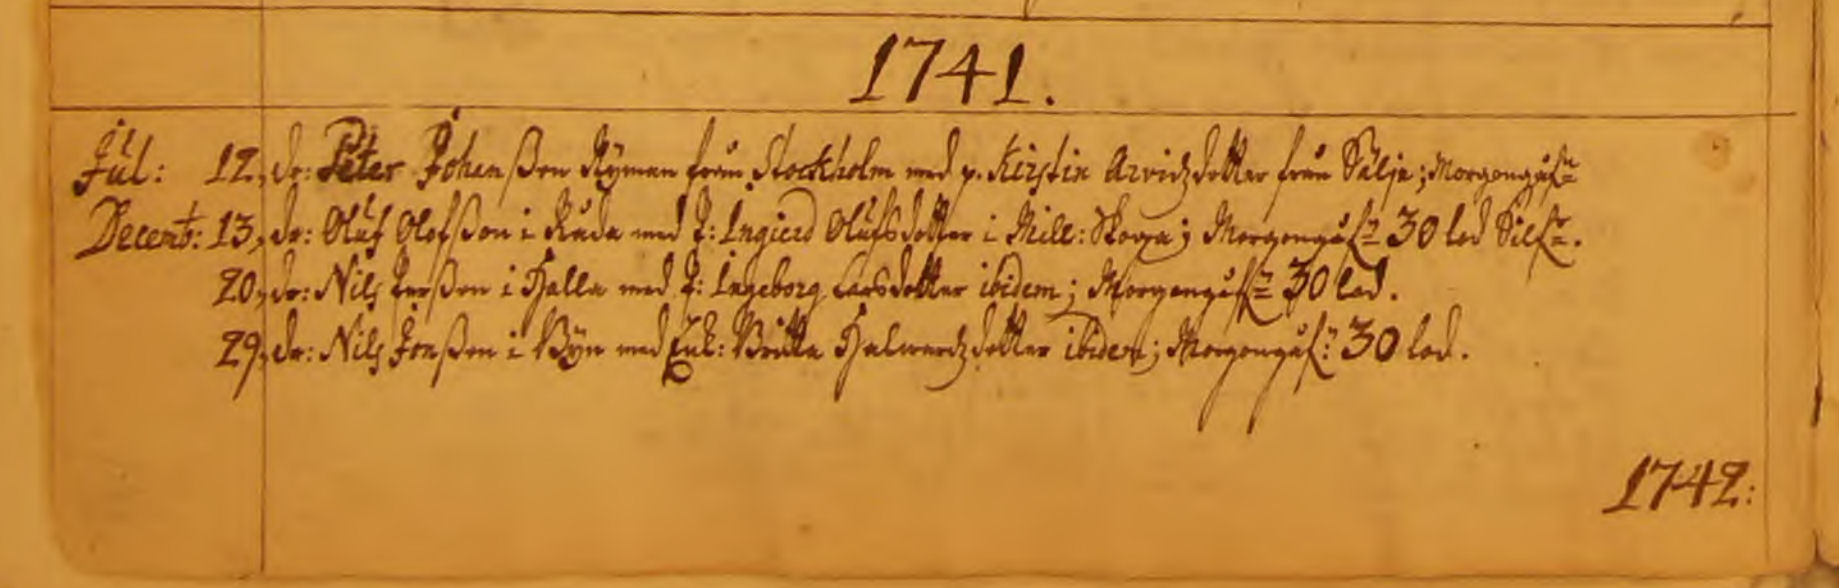 1741.
Jul: 12, dr: Peter Johansson Nyman från Stockholm med p. Kirstin Arvidzdotter från Sälja; Morgongåfn
Decemb: 13, dr: Oluf Olofsson i Ruda med P: Ingierd Olufsdotter i Mill: Skoga; Morgongåfn 30 lod Silfr.
20, dr: Nils Persson i Halla med P: Ingeborg Larsdotter ibidem; Morgongåfn 30 lod.
29, dr: Nils Jonsson i Byn med Enk: Britta Halwardzdotter ibidem; Morgongåfn: 30 lod.
1742: